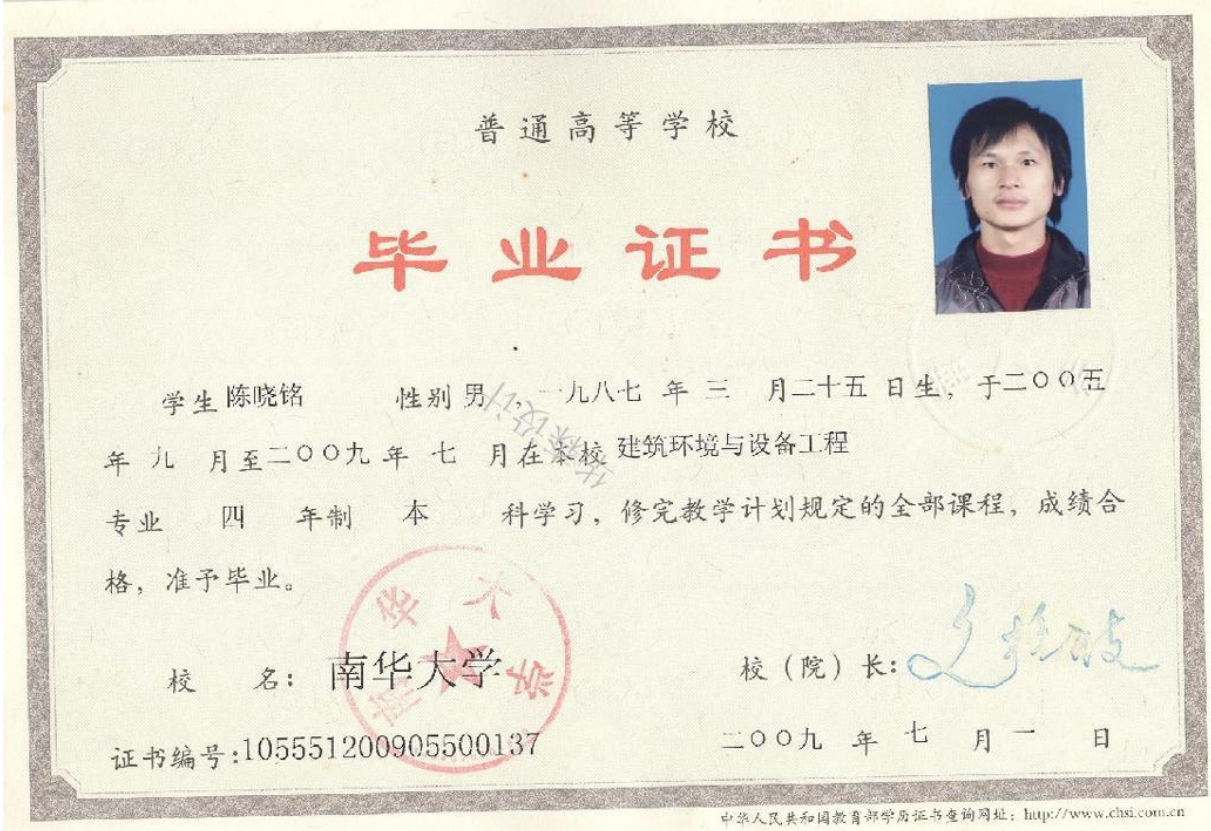 普通高等学校
毕业证书
学生 陈晓铭 性别 男，一九八七 年 三 月二十五 日生，于二〇〇五
年 九 月至二〇〇九 年 七 月在本校 建筑环境与设备工程
专业 四 年制 本 科学习，修完教学计划规定的全部课程，成绩合
格，准予毕业。
校 名：南华大学
南华大学
校（院）长：
证书编号:105551200905500137
二〇〇九 年 七 月 一 日
中华人民共和国教育部学历证书查询网址：http://www.chsi.com.cn